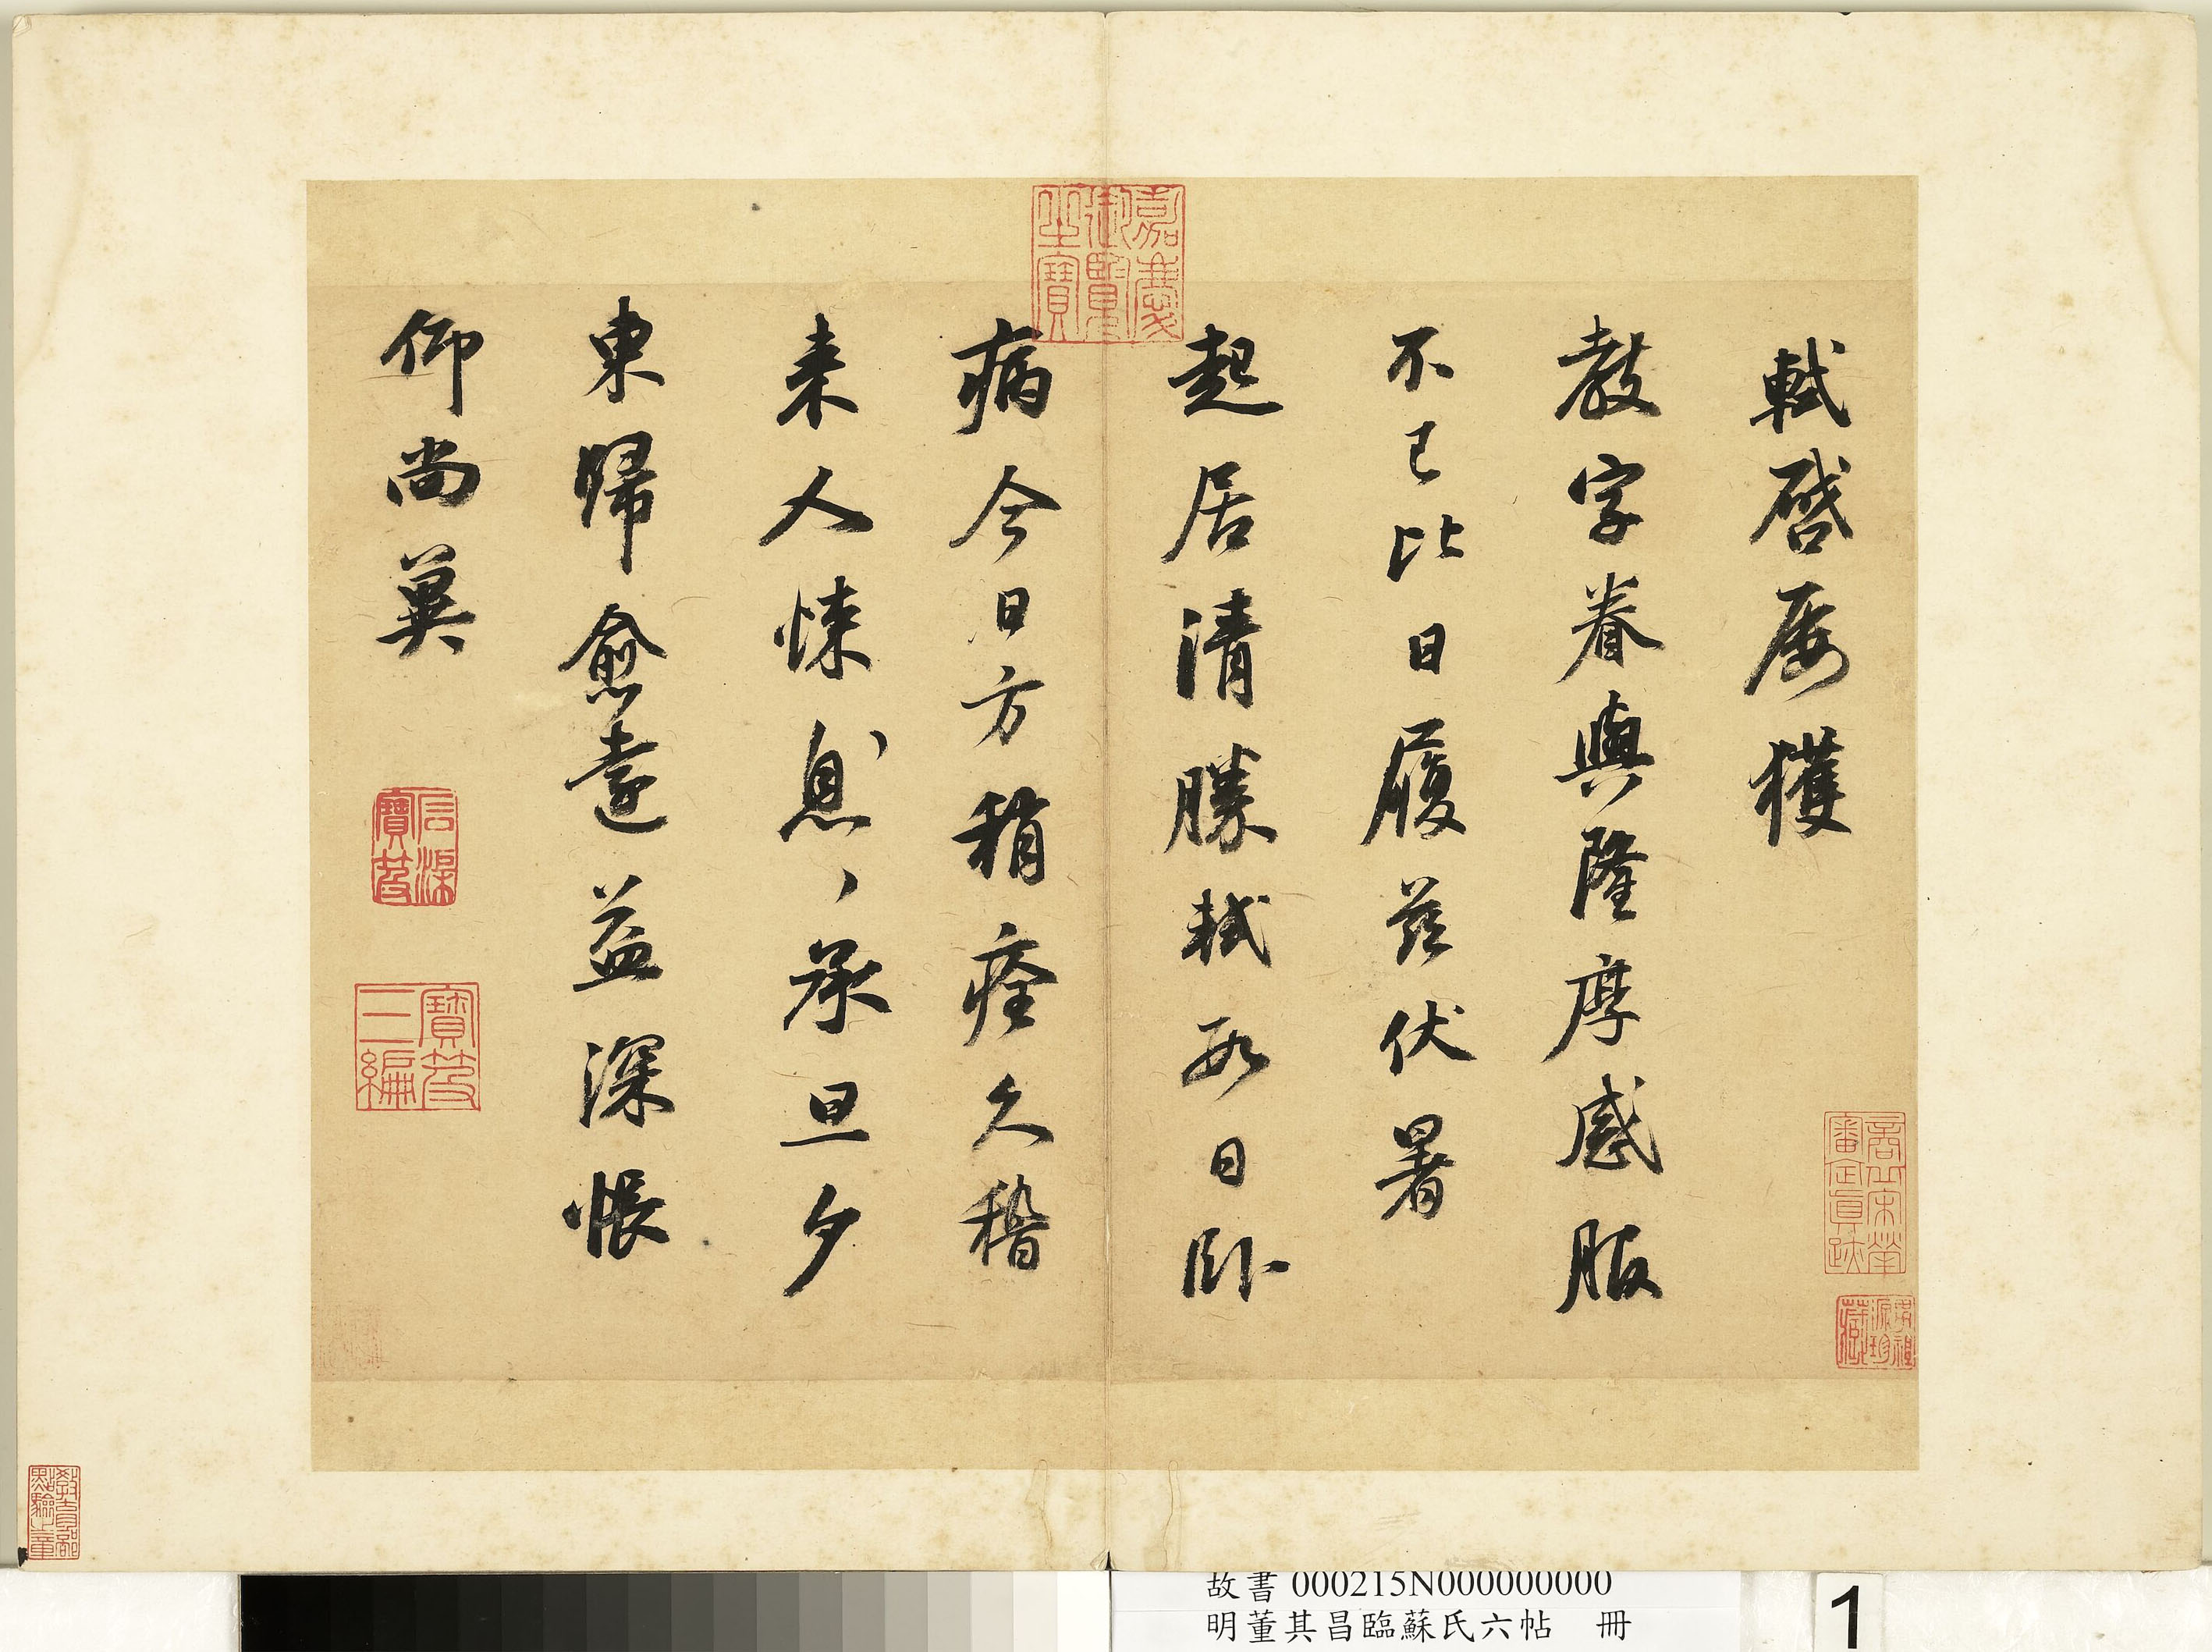 軾啓屡獲
教字眷與隆厚感服
不已比日履茲伏暑
起居清勝軾數日卧
病今日方稍痊久稽
来人悚息、承旦夕
東歸愈遠益深悵
仰尚冀
嘉慶御覽之寶
石渠寶笈
寶笈三編
商丘宋犖審定真跡
教育部點驗之章
故書 000215N000000000
明董其昌臨蘇氏六帖 冊
1